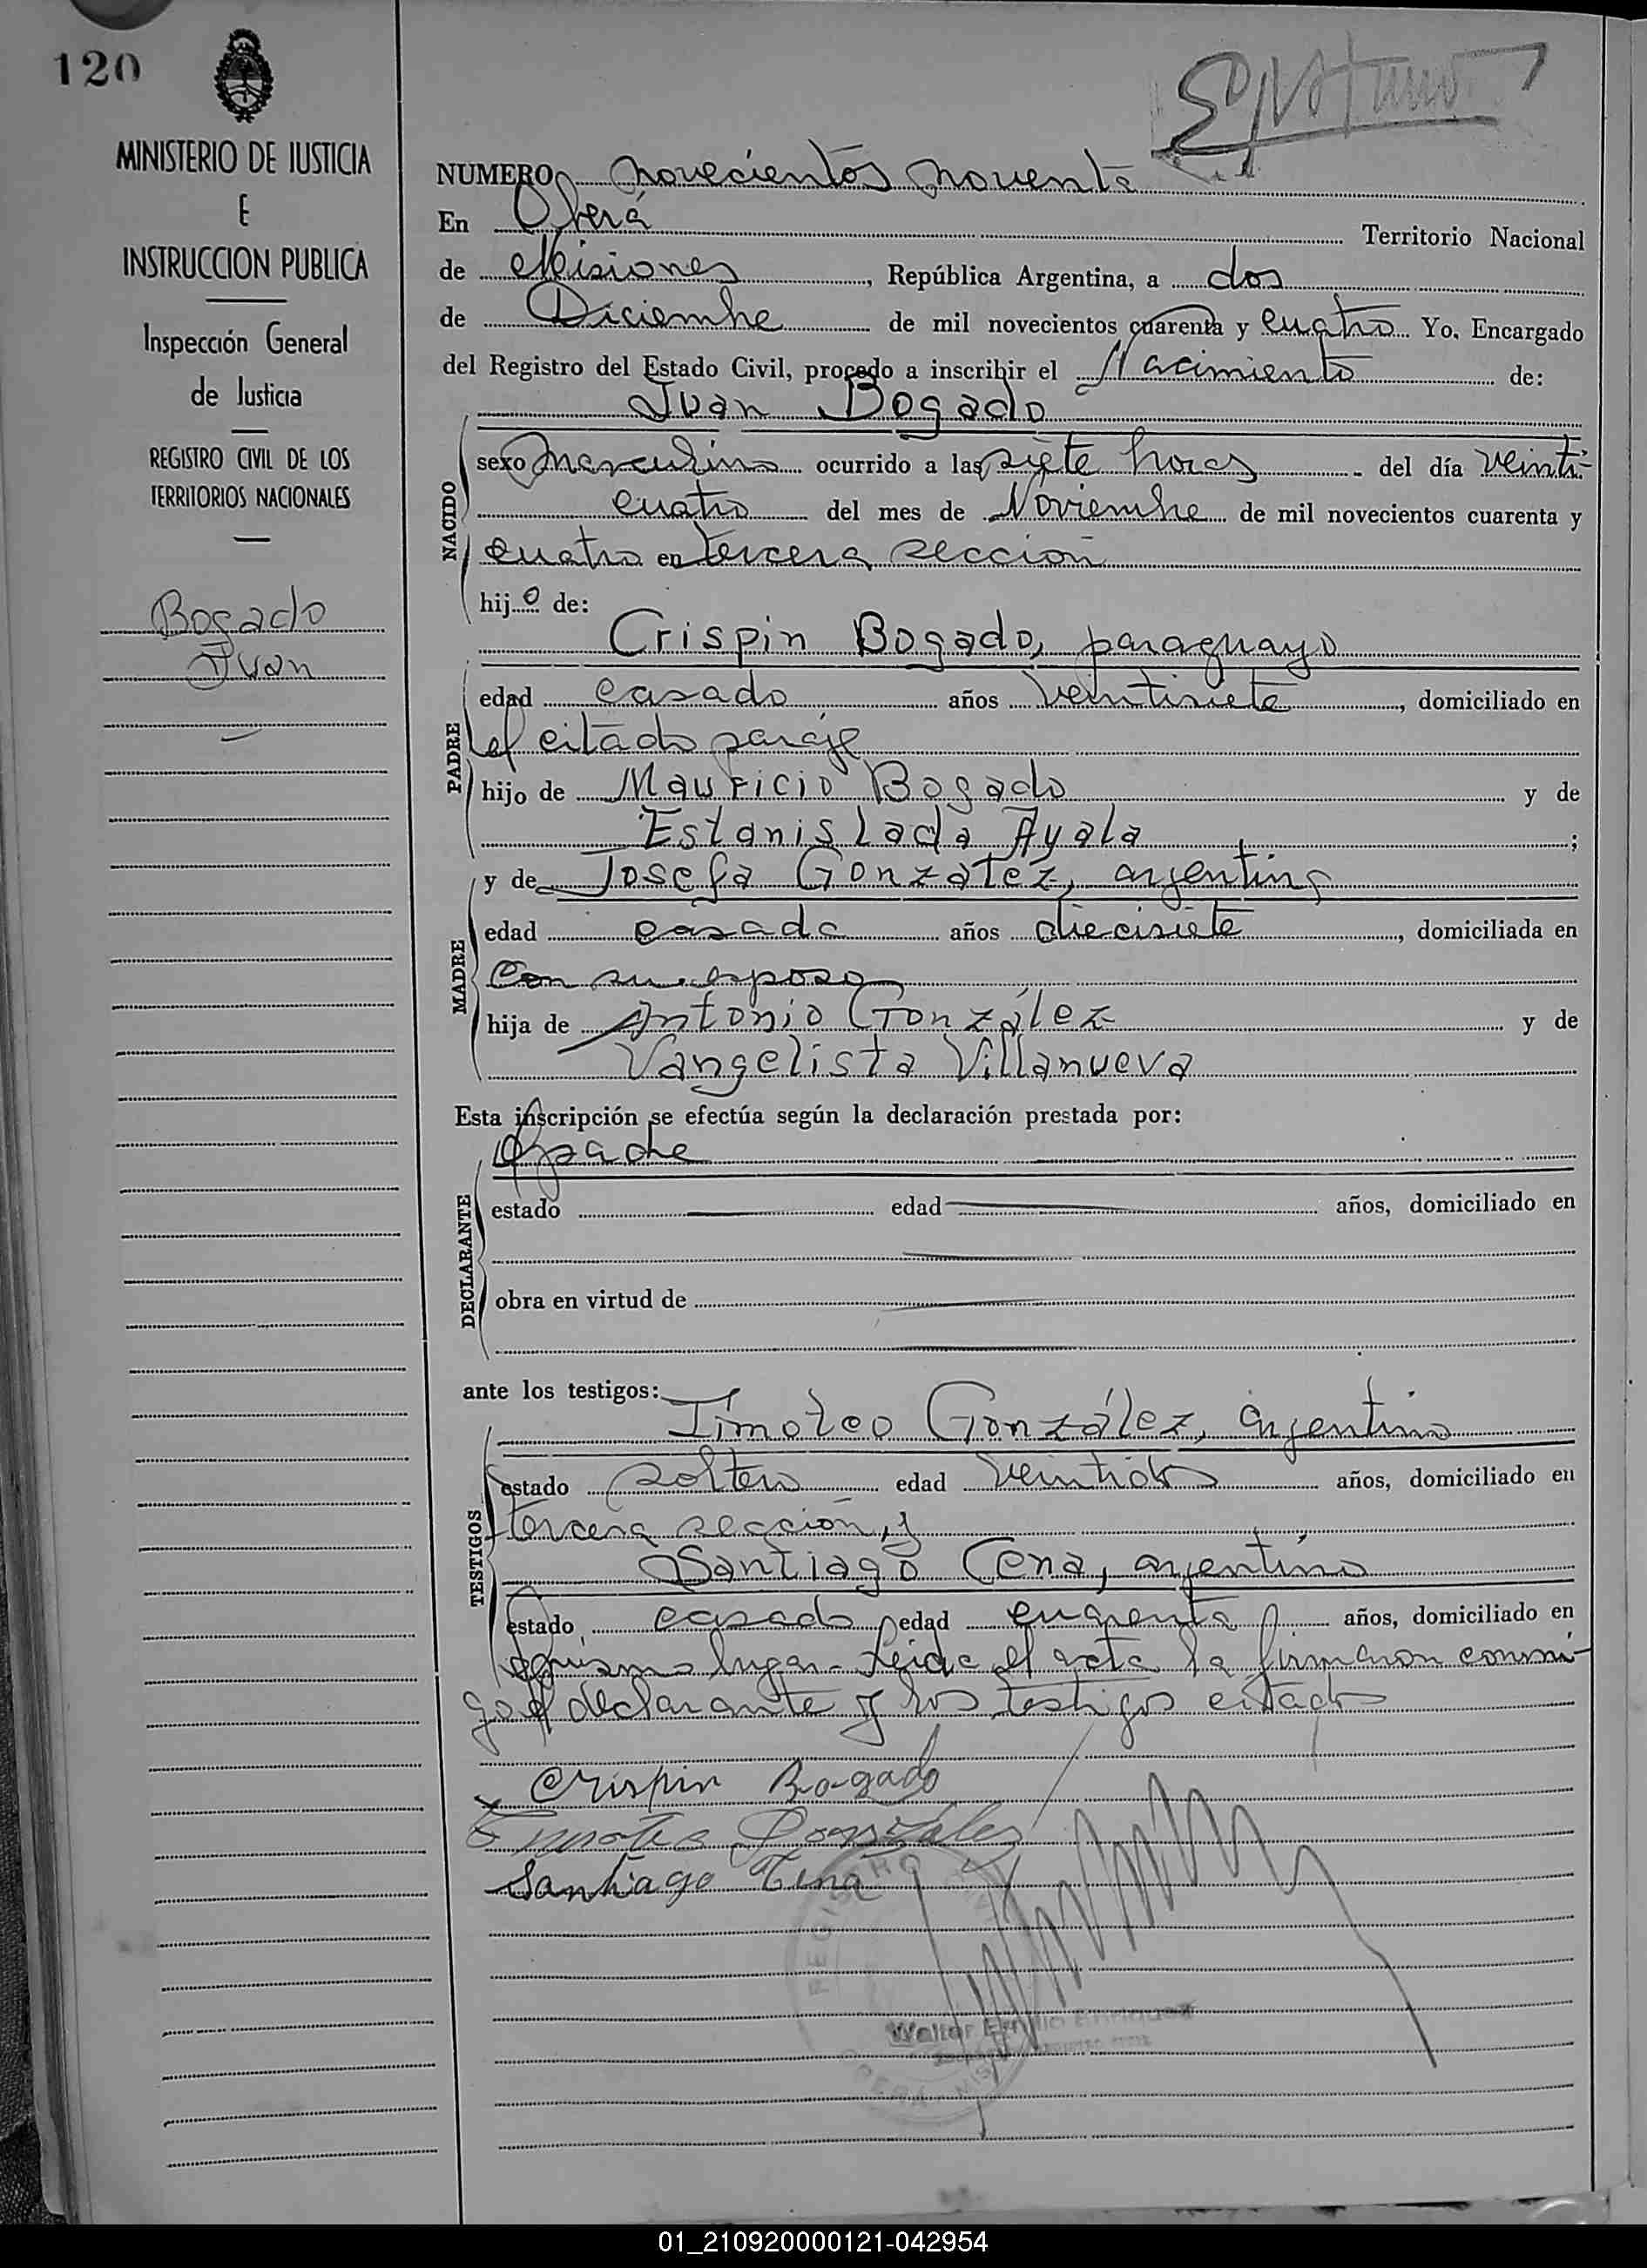 120
MINISTERIO DE JUSTICIA
E
INSTRUCCION PUBLICA
Inspección General
de Justicia
REGISTRO CIVIL DE LOS
TERRITORIOS NACIONALES
Bogado
Juan
NUMERO novecientos noventa
En Oberá Territorio Nacional
de Misiones, República Argentina, a dos
de Diciembre de mil novecientos cuarenta y cuatro Yo, Encargado
del Registro del Estado Civil, procedo a inscribir el Nacimiento de:
Juan Bogado
NACIDO
sexo masculino ocurrido a las siete horas del día veinti-
cuatro del mes de Noviembre de mil novecientos cuarenta y
cuatro en tercera sección
hijo de:
Crispin Bogado, paraguayo
PADRE
edad casado años veintisiete, domiciliado en
el citado paraje
hijo de Mauricio Bogado y de
Estanislada Ayala ;
y de Josefa González, argentina
MADRE
edad casada años diecisiete, domiciliada en
con su esposo
hija de Antonio González y de
Vangelista Villanueva
Esta inscripción se efectúa según la declaración prestada por:
el padre
DECLARANTE
estado edad años, domiciliado en
obra en virtud de
ante los testigos:
Timoteo González, argentino
TESTIGOS
estado soltero edad veintidos años, domiciliado en
tercera sección, y
Santiago Cena, argentino
estado casado edad cuarenta años, domiciliado en
el mismo lugar - Leida el acta la firmaron conmi-
go el declarante y los testigos citados
Crispin Bogado
Timoteo Gonzáles
Santiago Cena
REGISTRO
Walter Emilio Enriquez
01_210920000121-042954